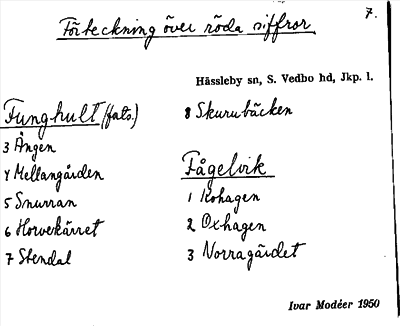 7.
Förteckning över röda siffror
Hässleby sn, S. Vedbo hd, Jkp. l.
Funghult (fots.)
3 Ängen
4 Mellangården
5 Snurran
6 Horvekärret
7 Stendal
8 Skurubäcken
Fågelvik
1 Kohagen
2 Oxhagen
3 Norragärdet
Ivar Modéer 1950